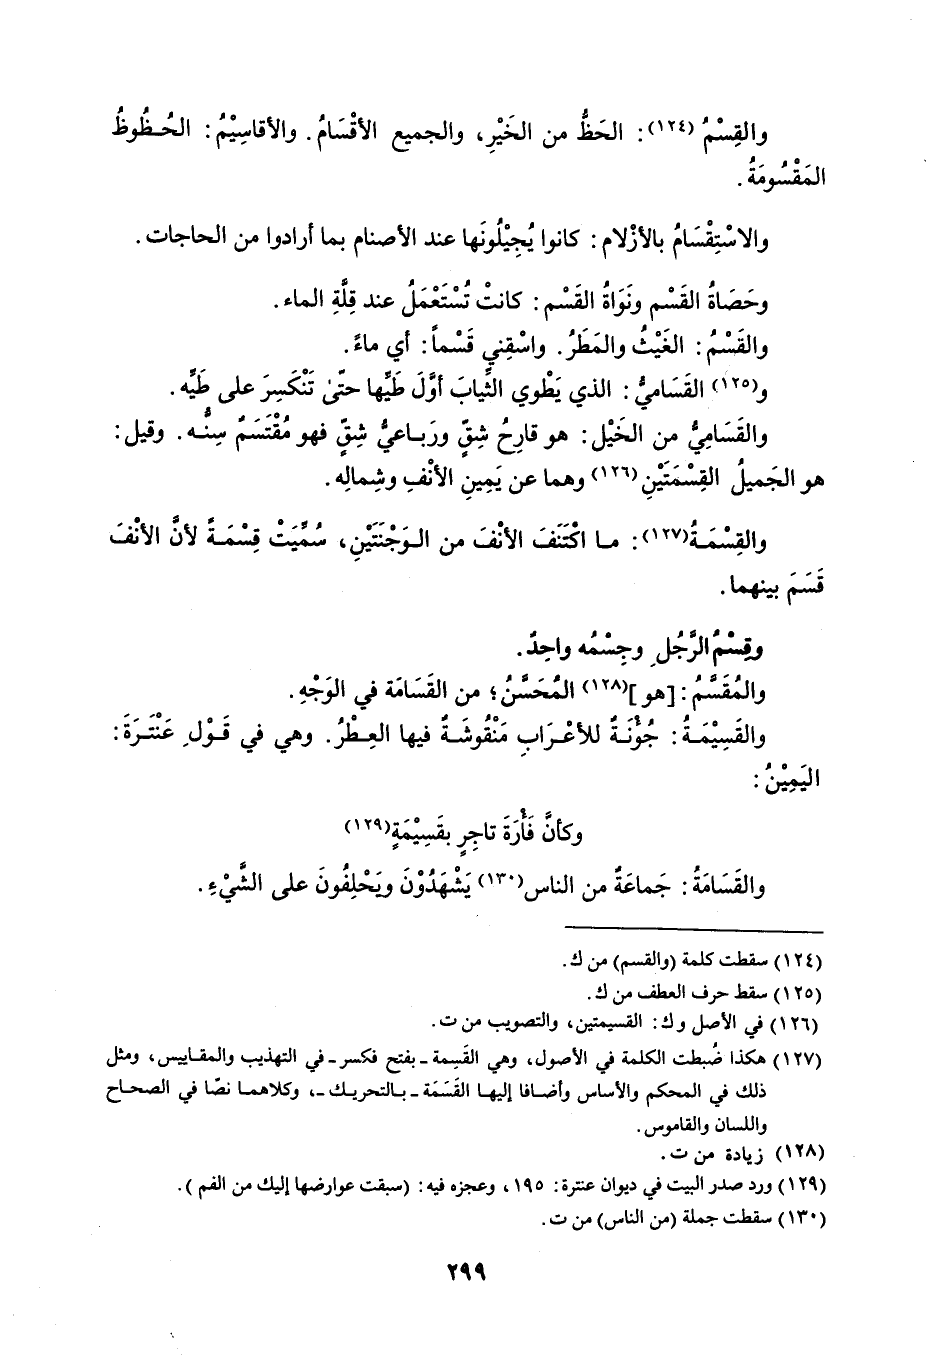 والقِسْمُ (١٢٤): الحَظُّ من الخَيْرِ، والجميع الأقْسَامُ. والأقاسِيْمُ: الحُظُوظُ
المَقْسُومَةُ.
والاسْتِقْسَامُ بالأزْلام: كانوا يُجِيْلُونَها عند الأصنام بما أرادوا من الحاجات.
وحَصَاةُ القَسْم ونَوَاةُ القَسْم: كانتْ تُسْتَعْمَلُ عند قِلَّةِ الماء.
والقَسْمُ: الغَيْثُ والمَطَرُ. واسْقِني قَسْماً: أي ماءً.
و(١٢٥) القَسَاميُّ: الذي يَطْوي الثِّيابَ أوَّلَ طَيِّها حتّىٰ تَنْكَسِرَ على طَيِّه.
والقَسَامِيُّ من الخَيْل: هو قارِحُ شِقٍّ ورَباعيُّ شِقٍّ فهو مُقْتَسَمٌ سِنُّه. وقيل:
هو الجَميلُ القِسْمَتَيْنِ (١٢٦) وهما عن يَمِينِ الأنْفِ وشِمالِه.
والقِسْمَةُ(١٢٧): ما اكْتَنَفَ الأنْفَ من الوَجْنَتَيْنِ، سُمِّيَتْ قِسْمَةً لأنَّ الأنْفَ
قَسَمَ بينهما.
وقِسْمُ الرَّجُلِ وجِسْمُه واحِدٌ.
والمُقَسَّمُ: [هو](١٢٨) المُحَسَّنُ؛ من القَسَامَة في الوَجْهِ.
والقَسِيْمَةُ: جُؤْنَةٌ للأعْرَابِ مَنْقُوشَةٌ فيها العِطْرُ. وهي في قَوْلِ عَنْتَرَةَ:
اليَمِيْنُ:
وكأنَّ فَأْرَةَ تاجِرٍ بقَسِيْمَةٍ(١٢٩)
والقَسَامَةُ: جَماعَةٌ من الناس(١٣٠) يَشْهَدُوْنَ ويَحْلِفُونَ على الشَّيْءِ.
(١٢٤) سقطت كلمة (والقسم) من ك.
(١٢٥) سقط حرف العطف من ك.
(١٢٦) في الأصل و ك: القسيمتين، والتصويب من ت.
(١٢٧) هكذا ضُبطت الكلمة في الأصول، وهي القَسِمة ـ بفتح فكسر ـ في التهذيب والمقاييس، ومثل
ذلك في المحكم والأساس وأضافا إليها القَسَمَة ـ بالتحريك ـ، وكلاهما نصّا في الصحاح
واللسان والقاموس.
(١٢٨) زيادة من ت.
(١٢٩) ورد صدر البيت في ديوان عنترة: ١٩٥، وعجزه فيه: (سبقت عوارضها إليك من الفم).
(١٣٠) سقطت جملة (من الناس) من ت.
٢٩٩